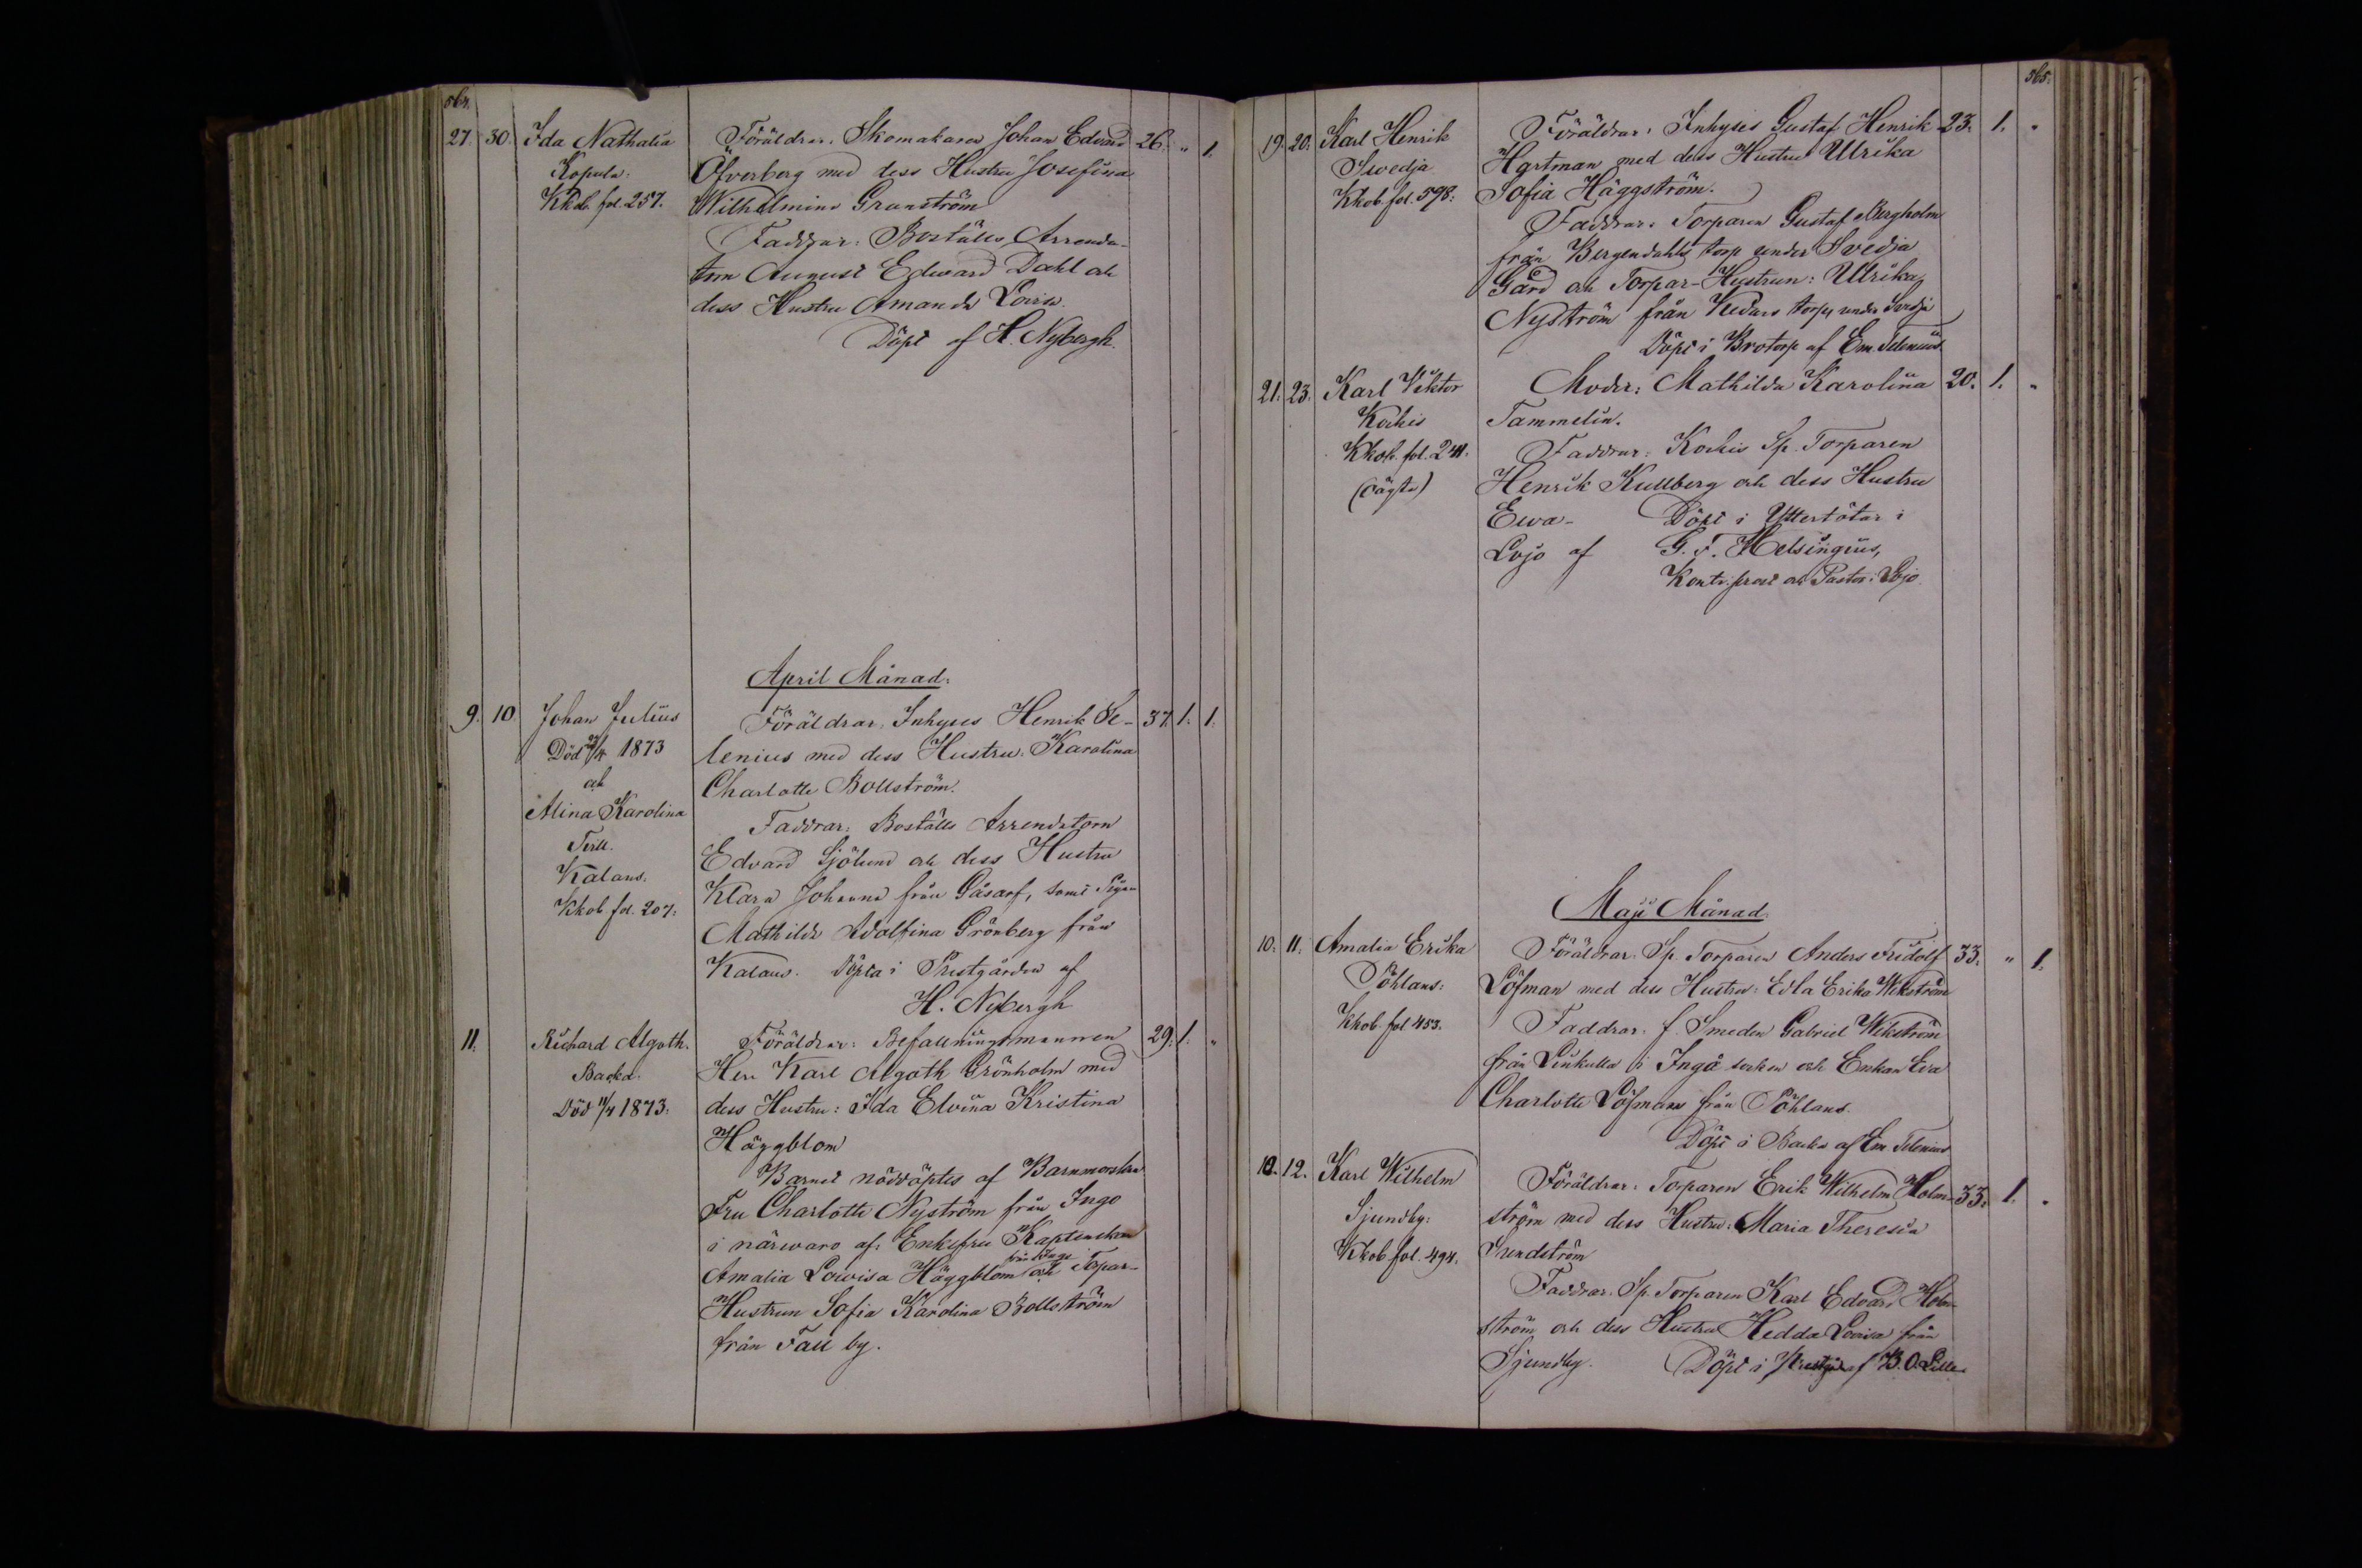 564.
27. 30. Ida Nathalia Föräldrar: Skomakaren Johan Edvard 26. " 1.
Kopula: Öfverberg med dess Hustru Josefina
Kkob. fol. 257. Wilhelmina Granström
Faddrar: Boställs Arrenda-
torn August Edward Dahl och
dess Hustru Amanda Lovisa.
Döpt af H. Nybergh.
April Månad:
9. 10. Johan Julius Föräldrar: Inhyses Henrik Se- 37. 1. 1.
Död /4 1873 lenius med dess Hustru: Karolina
och Charlotte Bollström.
Alina Karolina Faddrar: Boställs Arrendatorn
Tvill. Edvard Sjölund och dess Hustru
Kalans: Klara Johanna från Gåsarf, samt Pigan
Kkob. fol. 207: Mathilda Adolfina Grönberg från
Kalans. Döpta i Prestgården af
H. Nybergh
11. Richard Algoth. Föräldrar: Befallningsmannen 29. 1. "
Backa: Herr Karl Algoth Grönholm med
Död 11/4 1873: dess Hustru: Ida Elvina Kristina
Häggblom
Barnet nöddöptes af Barnmorskan
Fru Charlotte Nyström från Ingo
i närwaro af: Enkefru Kaptenskan
från Ingo
Amalia Lowisa Häggblom och Topar-
Hustrun Sofia Karolina Bollström
från Fall by.
565.
19. 20. Karl Henrik Föräldrar: Inhyses Gustaf Henrik 23. 1. "
Swedja Hartman med dess Hustru Ulrika
Kkob. fol. 598: Sofia Häggström.
Faddrar: Torparen Gustaf Bergholm
från Bergendahls torp under Svedja
Gård och Torpar-Hustrun: Ulrika
Nyström från torp under Svedja
Döpt i Brotorp af Em. Telenius
21. 23. Karl Viktor Moder: Mathilda Karolina 20. 1. "
Kockis Tammelin.
Kkob. fol. 241. Faddrar: Kockis Sp. Torparen
(oägta) Henrik Kullberg och dess Hustru
Ewa- Döpt i Yttertötar i
Lojo af G. F. Helsingius,
Kontr. prost och Pastor i Lojo
Maji Månad
10. 11. Amalia Erika Föräldrar: Sp. Torparen Anders Fridolf 33. " 1.
Pöhlans: Löfman med dess Hustru: Edla Erika Wikström
Kkob. fol 453. Faddrar: f. Smeden Gabriel Wikström
från Linkulla i Ingå socken och Enkan Eva
Charlotte Löfman från Pöhlans.
Döpt i Backa af Em Telenius
10. 12. Karl Wilhelm Föräldrar: Torparen Erik Wilhelm Holm- 33. 1. "
Sjundby: ström med dess Hustru: Maria Theresia
Kkob. fol. 494. Sundström
Faddrar: Sp. Torparen Karl Edvard Holm-
ström och dess Hustru Hedda Lovisa från
Sjundby. Döpt i Prestgård af B. O. Lille